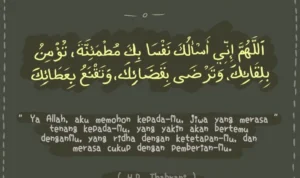 اَللَّهُمَّ إِنِّي أَسْأَلُكَ نَفْسًا بِكَ مُطْمَئِنَّةً، تُؤْمِنُ
بِلِقَائِكَ، وَتَرْضَى بِقَضَائِكَ، وَتَقْنَعُ بِعَطَائِكَ
" Ya Allah, aku memohon kepada-Mu, jiwa yang merasa "
tenang kepada-Mu, yang yakin akan bertemu
denganMu, yang ridha dengan ketetapan-Mu, dan
merasa cukup dengan pemberian-Mu.
( H.R. Thabrani )